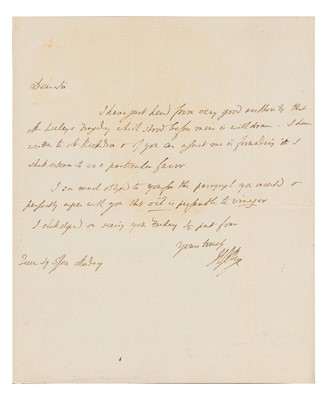 Dear Sir
I have just heard from very good authority that
Mr Wesleys Tragedy which stood before mine is withdrawn — I have
written to Mr Richardson & if you can assist me in forwarding it I
shall esteem it as a particular favor
I am much obliged to you for the paragraph you inserted &
perfectly agree with you that oil is preferable to vinegar
I shall depend on seeing you Friday ½ past four
Yours truly
Queen Sq Monday